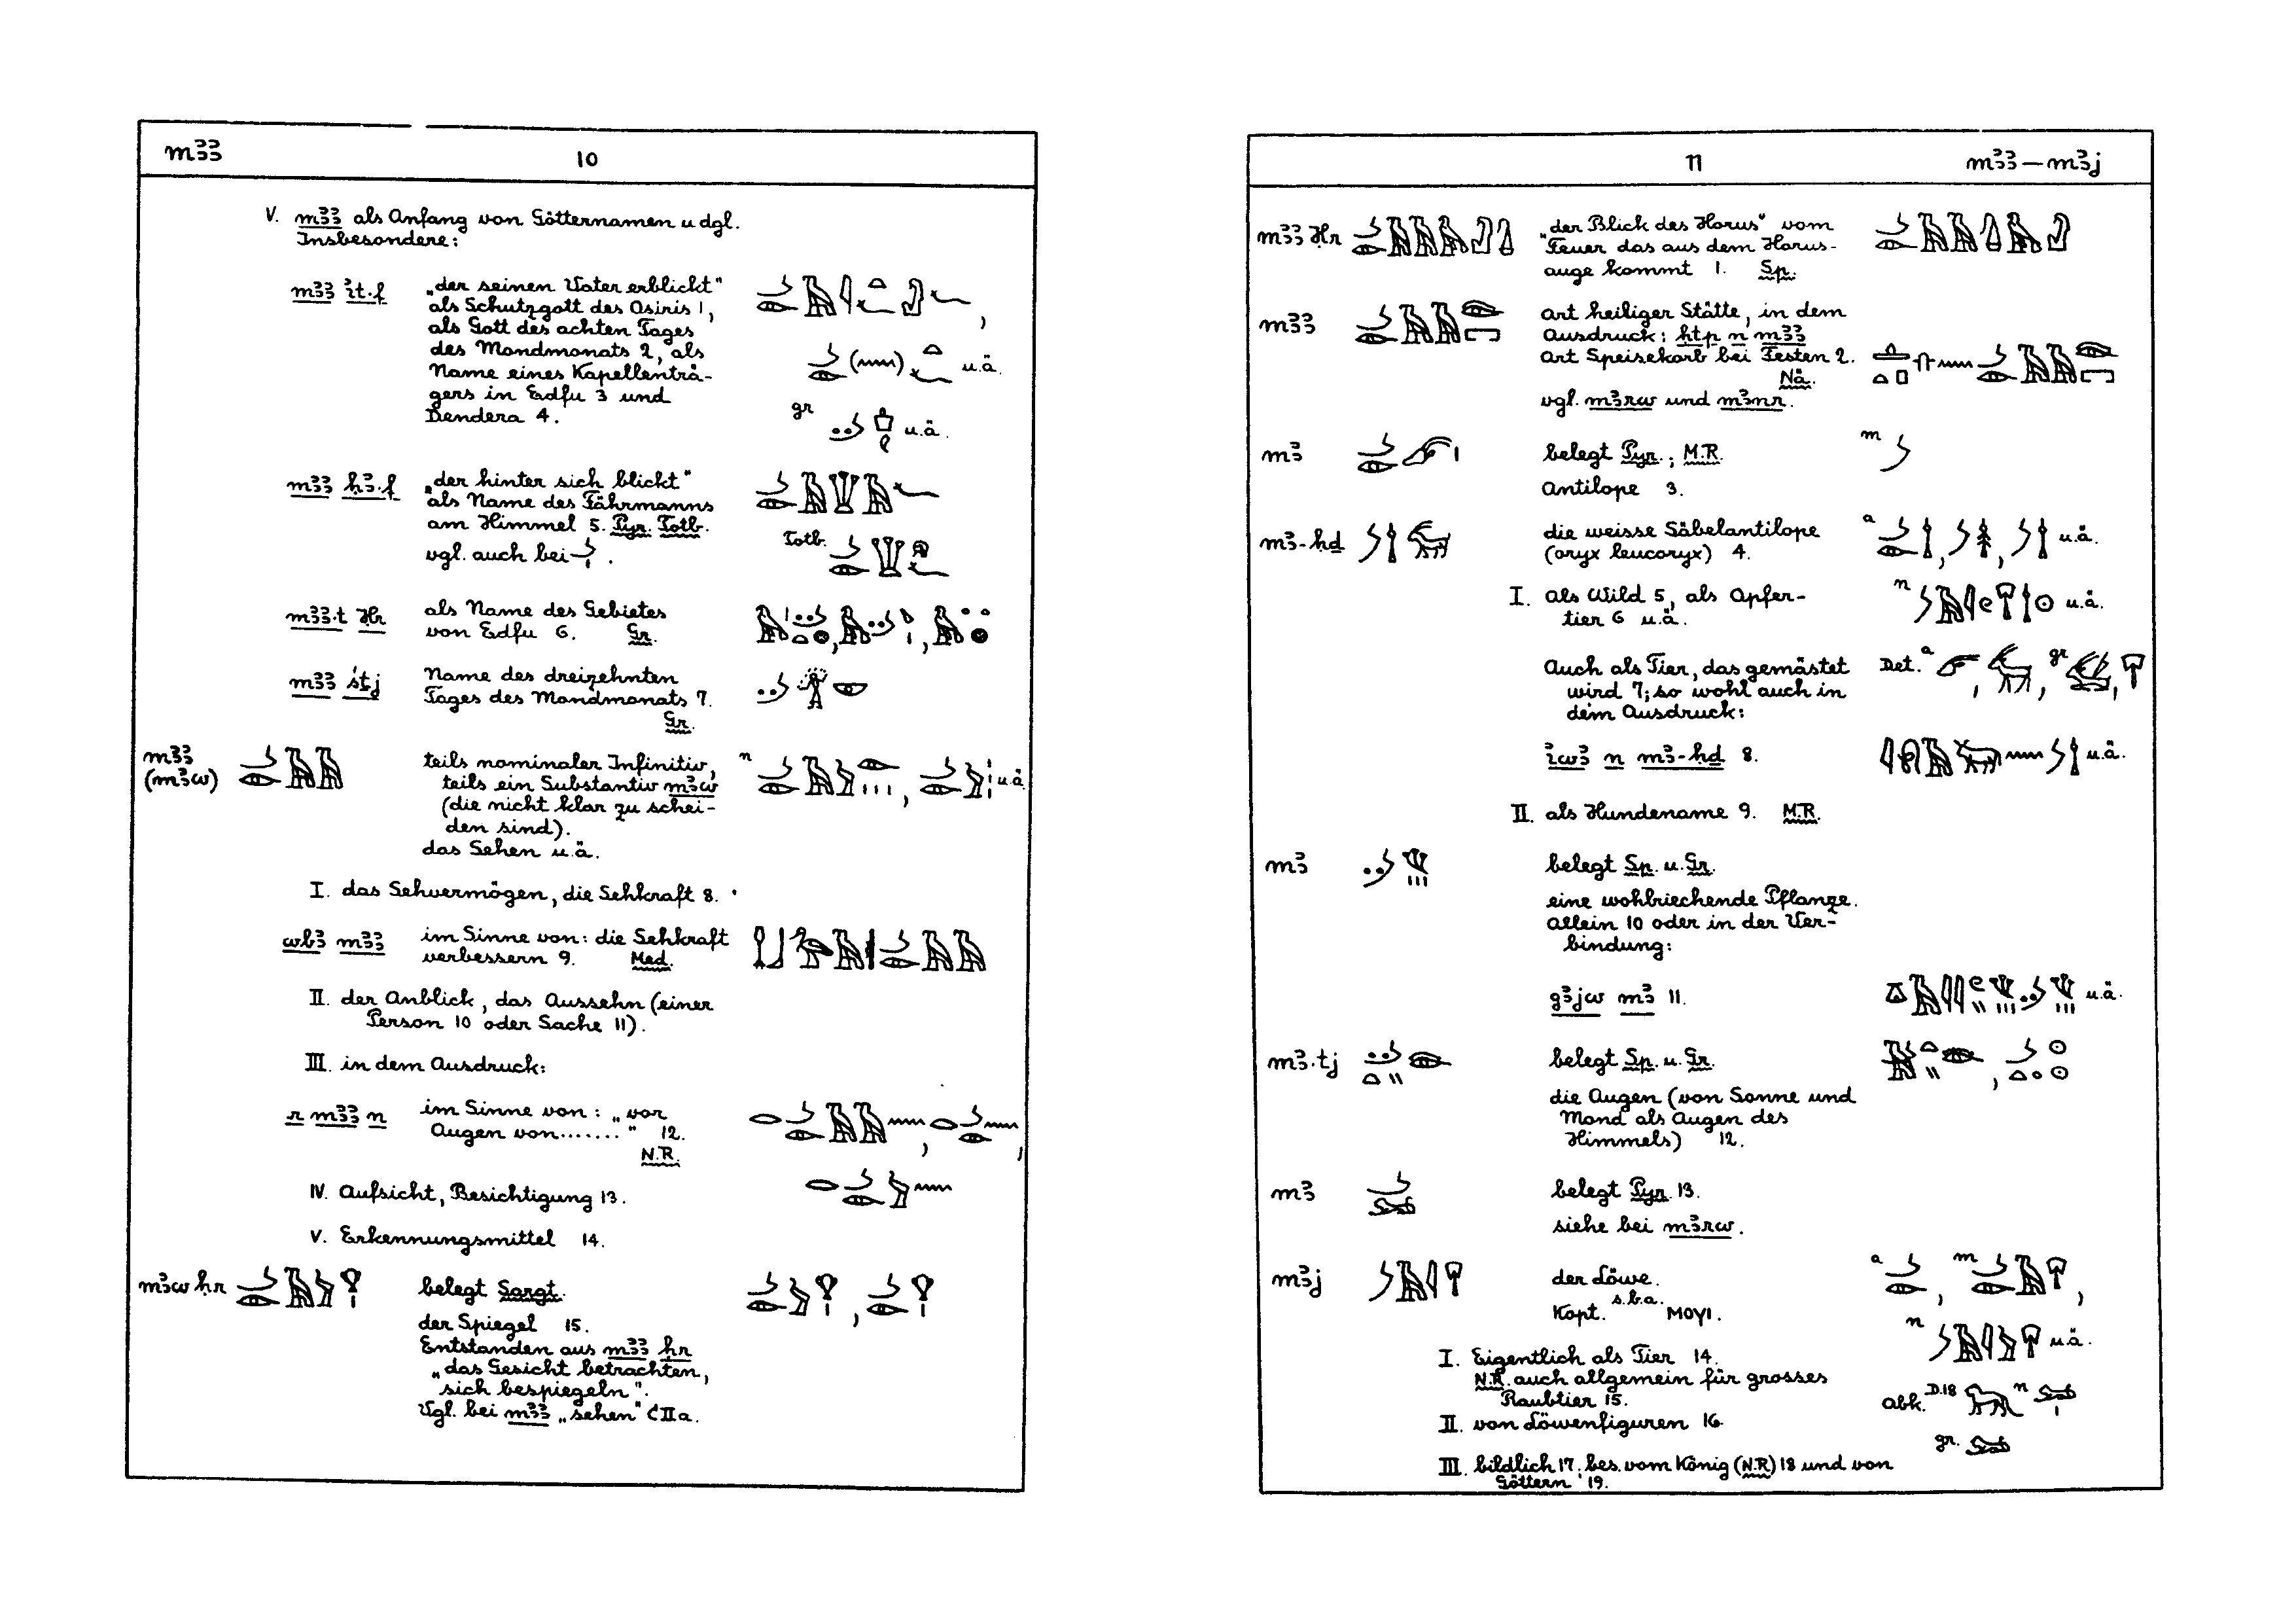 mꜣꜣ
10
V. mꜣꜣ als Anfang von Götternamen u dgl.
Insbesondere:
mꜣꜣ ı͗t.f
„der seinen Vater erblickt"
als Schutzgott des Osiris 1,
als Gott des achten Tages
des Mondmonats 2, als
Name eines Kapellenträ-
gers in Edfu 3 und
Dendera 4.
u.ä.
gr
u.ä.
mꜣꜣ ḥꜣ.f
„der hinter sich blickt"
als Name des Fährmanns
am Himmel 5. Pyr. Totb.
vgl. auch bei
Totb.
mꜣꜣ.t Ḥr
als Name des Gebietes
von Edfu 6. Gr.
mꜣꜣ śṯj
Name des dreizehnten
Tages des Mondmonats 7.
Gr.
mꜣꜣ
(mꜣw)
teils nominaler Infinitiv,
teils ein Substantiv mꜣw
(die nicht klar zu schei-
den sind).
das Sehen u.ä.
n
u.ä.
I. das Sehvermögen, die Sehkraft 8.
wbꜣ mꜣꜣ
im Sinne von: die Sehkraft
verbessern 9. Med.
II. der Anblick, das Aussehn (einer
Person 10 oder Sache 11).
III. in dem Ausdruck:
r mꜣꜣ n
im Sinne von: „vor
Augen von ......." 12.
N.R.
IV. Aufsicht, Besichtigung 13.
V. Erkennungsmittel 14.
mꜣw ḥr
belegt Sargt.
der Spiegel 15.
Entstanden aus mꜣꜣ ḥr
„das Gesicht betrachten,
sich bespiegeln".
Vgl. bei mꜣꜣ „sehen" C II a.
11
mꜣꜣ — mꜣj
mꜣꜣ Ḥr
„der Blick des Horus" vom
Feuer das aus dem Horus-
auge kommt 1. Sp.
mꜣꜣ
Art heiliger Stätte, in dem
Ausdruck: ḥtp n mꜣꜣ
Art Speisekorb bei Festen 2.
Nä.
vgl. mꜣrw und mꜣnr.
mꜣ
belegt Pyr.; M.R.
Antilope 3.
m
mꜣ-ḥḏ
die weisse Säbelantilope
(oryx leucoryx) 4.
a
u.ä.
I. als Wild 5, als Opfer-
tier 6 u.ä.
n
u.ä.
Auch als Tier, das gemästet
wird 7; so wohl auch in
dem Ausdruck:
Det. a
gr
ı͗wꜣ n mꜣ-ḥḏ 8.
u.ä.
II. als Hundename 9. M.R.
mꜣ
belegt Sp. u. Gr.
eine wohlriechende Pflanze.
Allein 10 oder in der Ver-
bindung:
gꜣjw mꜣ 11.
u.ä.
mꜣ.tj
belegt Sp. u. Gr.
die Augen (von Sonne und
Mond als Augen des
Himmels) 12.
mꜣ
belegt Pyr. 13.
siehe bei mꜣrw.
mꜣj
der Löwe.
Kopt. s.b.a. ⲙⲟⲩⲓ.
a
m
n
u.ä.
I. Eigentlich als Tier 14.
N.R. auch allgemein für grosses
Raubtier 15.
Abk. D.18
n
gr.
II. von Löwenfiguren 16.
III. bildlich 17; bes. vom König (N.R.) 18 und von
Göttern 19.